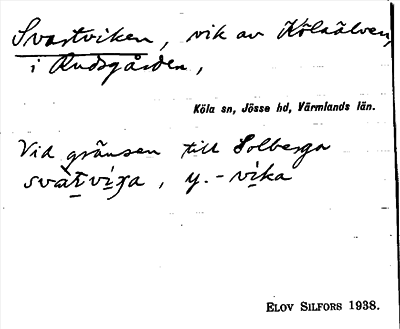 Svartviken, vik av Kölaälven,
i Rudsgården,
Köla sn, Jösse hd, Värmlands län.
Vid gränsen till Solberga
svat̠vi̠ga, y. -vi̠ka
ELOV SILFORS 1938.